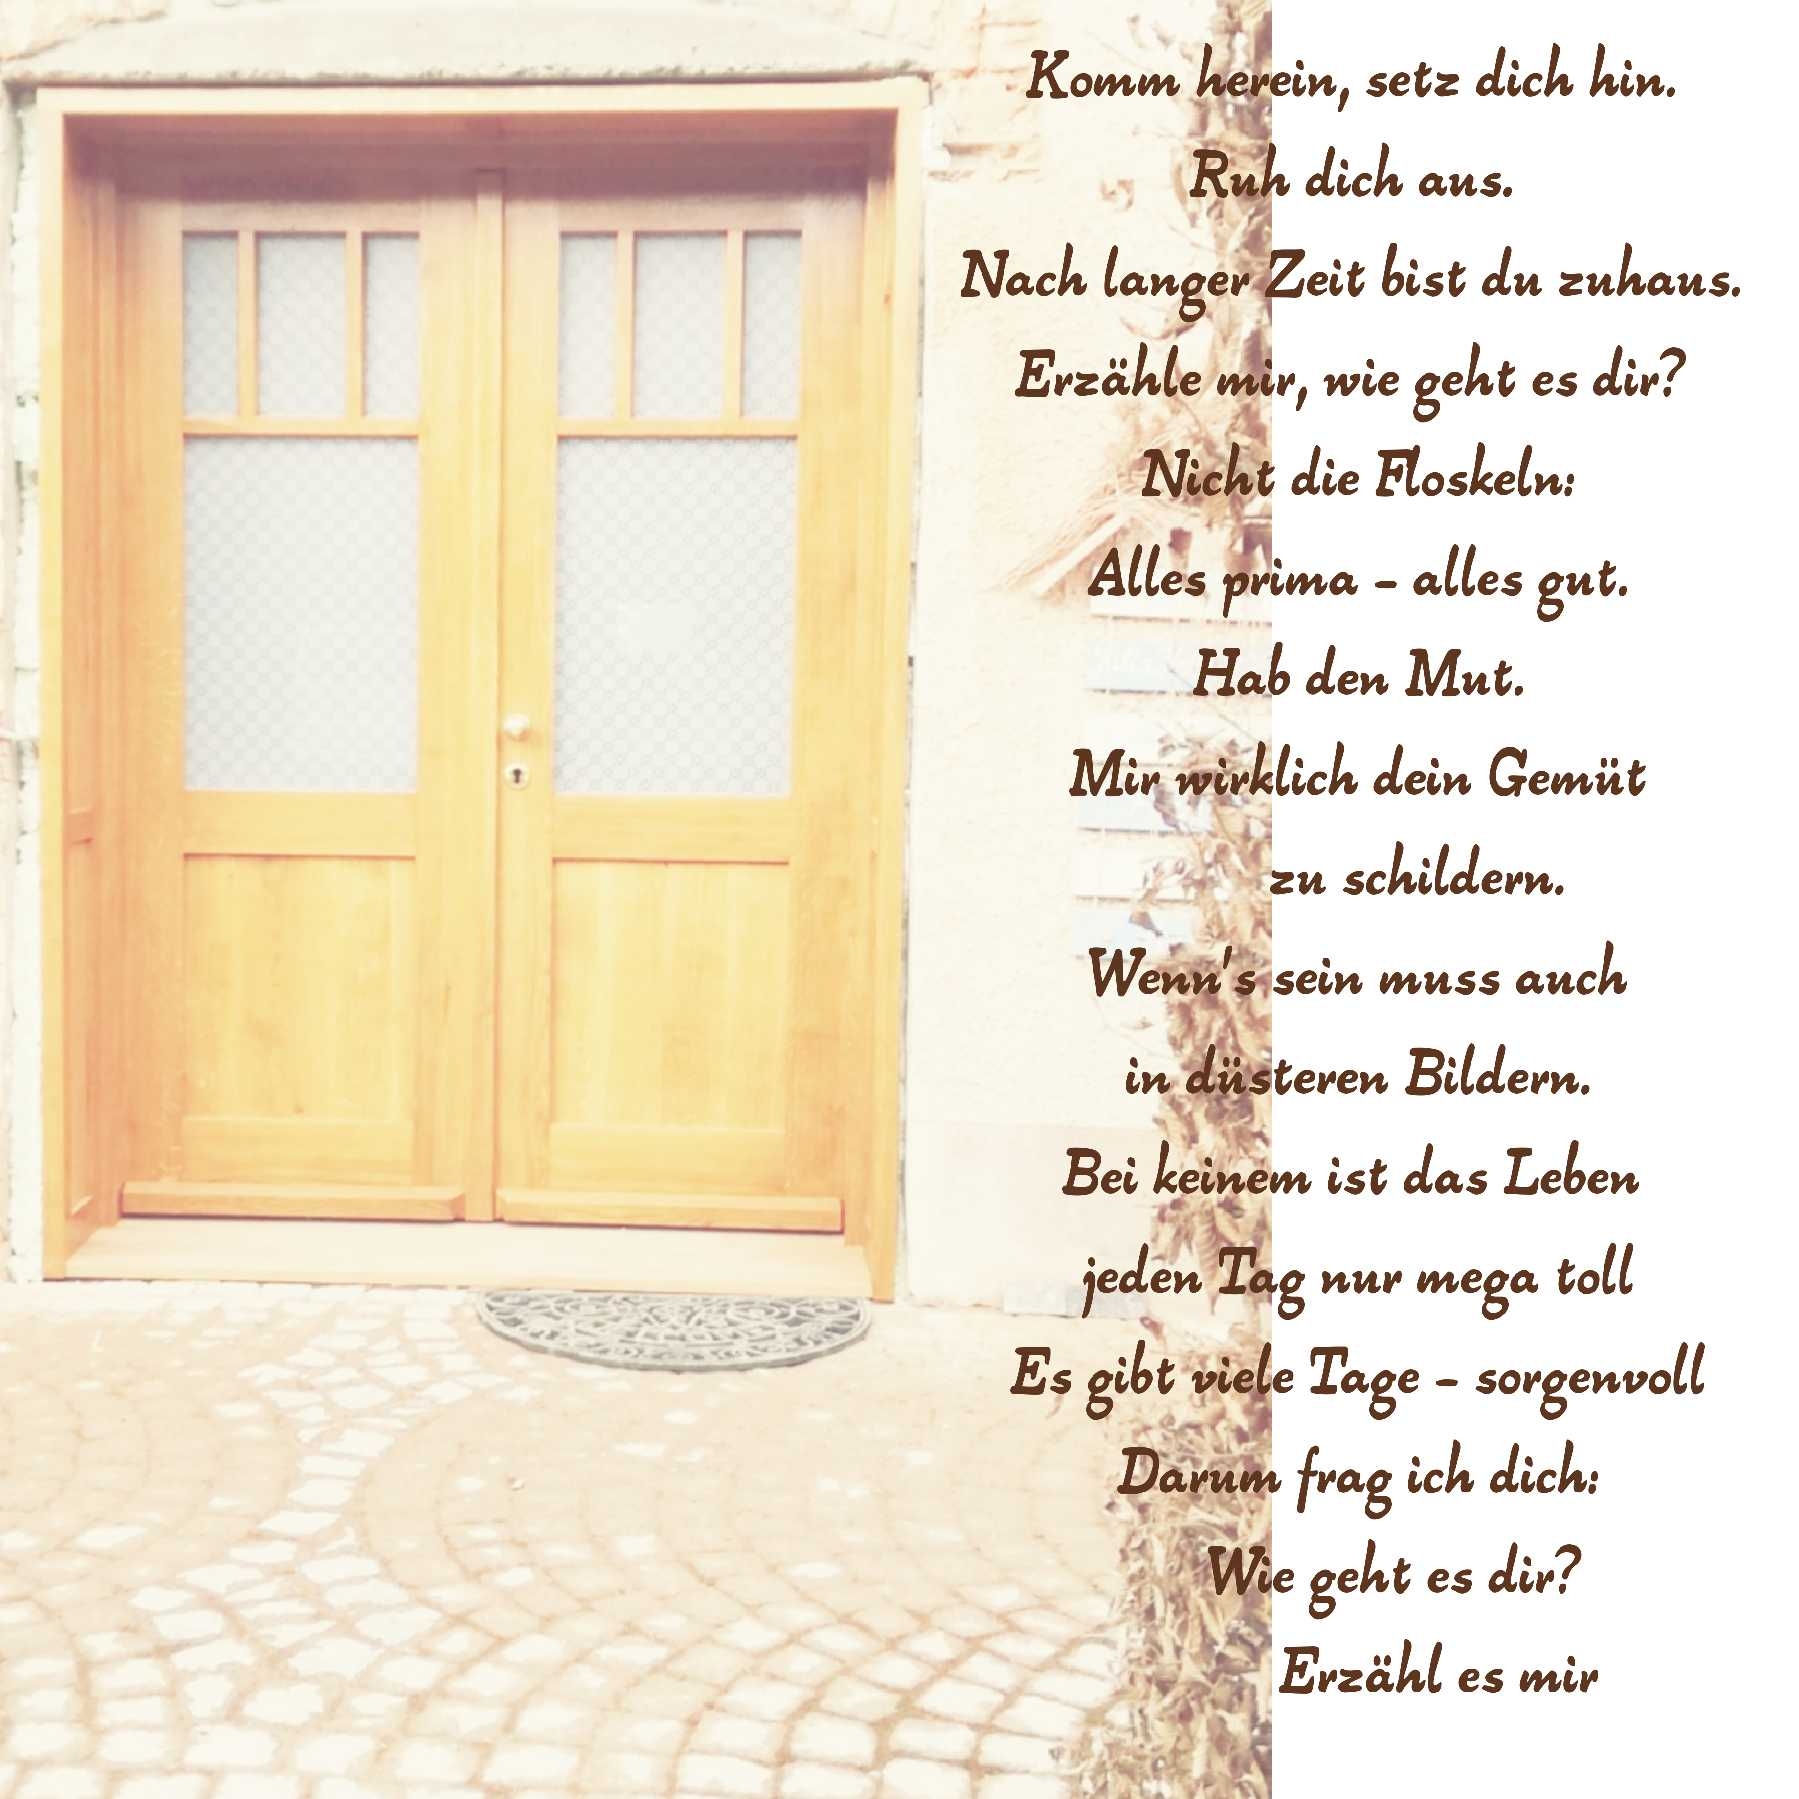 Komm herein, setz dich hin.
Ruh dich aus.
Nach langer Zeit bist du zuhaus.
Erzähle mir, wie geht es dir?
Nicht die Floskeln:
Alles prima - alles gut.
Hab den Mut.
Mir wirklich dein Gemüt
zu schildern.
Wenn's sein muss auch
in düsteren Bildern.
Bei keinem ist das Leben
jeden Tag nur mega toll
Es gibt viele Tage - sorgenvoll
Darum frag ich dich:
Wie geht es dir?
Erzähl es mir